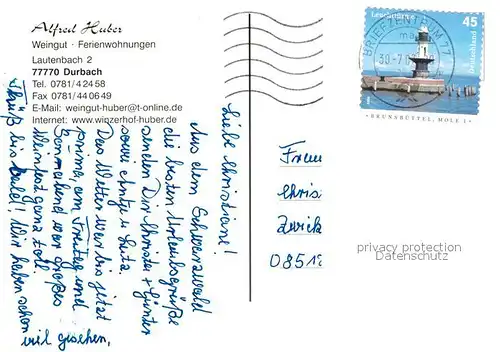 Alfred Huber
Weingut · Ferienwohnungen
Lautenbach 2
77770 Durbach
Tel. 0781/42458
Fax 0781/440649
E-Mail: weingut-huber@t-online.de
Internet: www.winzerhof-huber.de
Leuchttürme
45
Deutschland
BRIEFZENTRUM 77
BRUNSBÜTTEL, MOLE 1
Liebe Christiane!
Aus dem Schwarzwald
die besten Urlaubsgrüße
senden Dir Christa + Günter
sowie Antje + Lutz.
Das Wetter war bis jetzt
prima, am Freitag und
Sonnabend war großes
Weinfest ganz toll.
Tschüß bis bald! Wir haben schon
viel gesehen,
Frau
Chris
Zwick
0851
privacy protection
Datenschutz